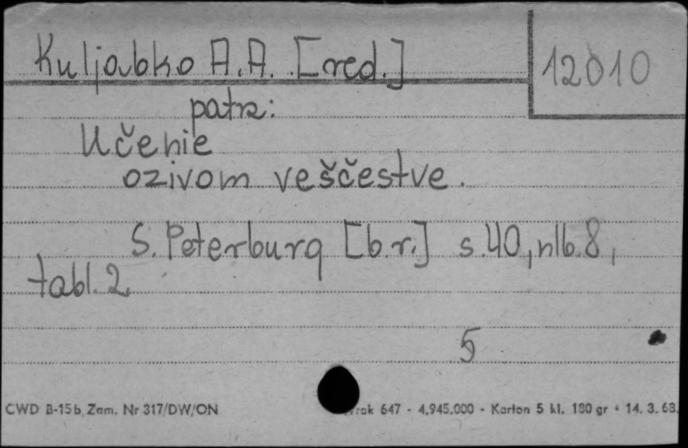 Kuljabko A.A. [red.]
12010
patrz:
Učenie
ozivom veščestve.
S. Peterburg [b.r.] s.40, nlb.8,
tabl. 2
5
CWD B-15b, Zam. Nr 317/DW/ON
647 - 4.945.000 - Karton 5 kl. 180 gr • 14. 3. 68.